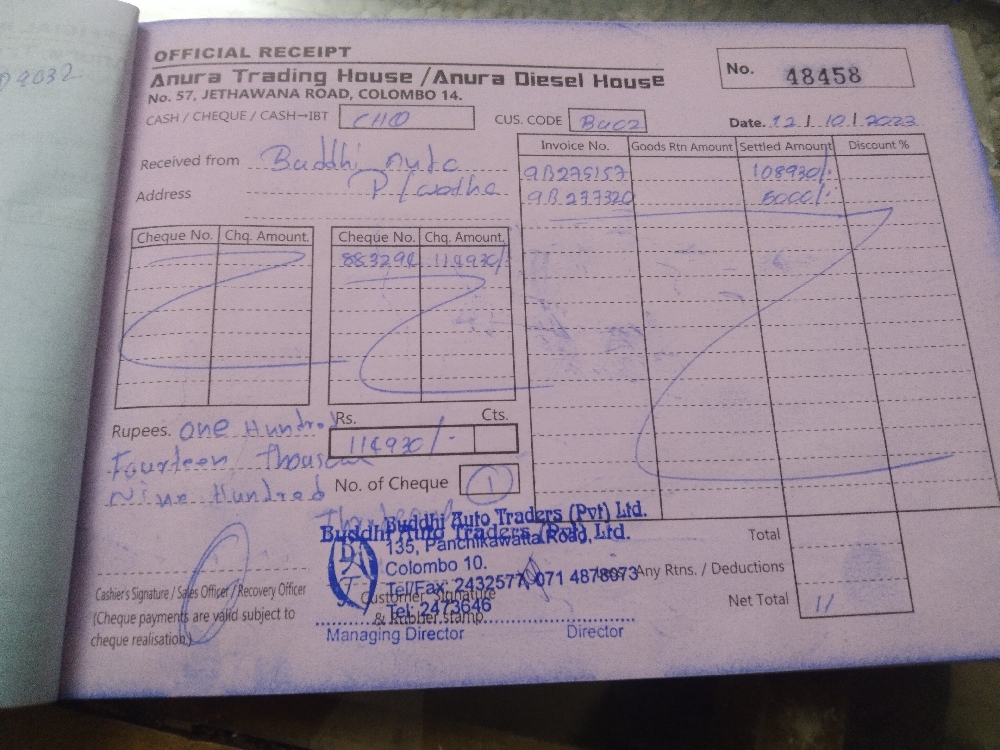 OFFICIAL RECEIPT
Anura Trading House /Anura Diesel House
No. 57, JETHAWANA ROAD, COLOMBO 14.
No. 48458
CASH / CHEQUE / CASH–IBT CHQ
CUS. CODE
Date. 12 / 10 / 2023
Received from Buddhi Auto
Address
Invoice No. Goods Rtn Amount Settled Amount Discount %
108930/-
Cheque No. Chq. Amount. Cheque No. Chq. Amount.
114930/-
Rupees. One Hundred
Fourteen Thousand
Nine Hundred
Rs. Cts.
114930/-
No. of Cheque 1
Buddhi Auto Traders (Pvt) Ltd.
Buddhi Auto Traders (Pvt) Ltd.
135, Panchikawatta Road,
Colombo 10.
Tel/Fax: 2432577, 071 4878073
Tel: 2473646
Customer Signature
& Rubber stamp
Managing Director Director
Cashier's Signature / Sales Officer / Recovery Officer
(Cheque payments are valid subject to
cheque realisation.)
Total
Any Rtns. / Deductions
Net Total